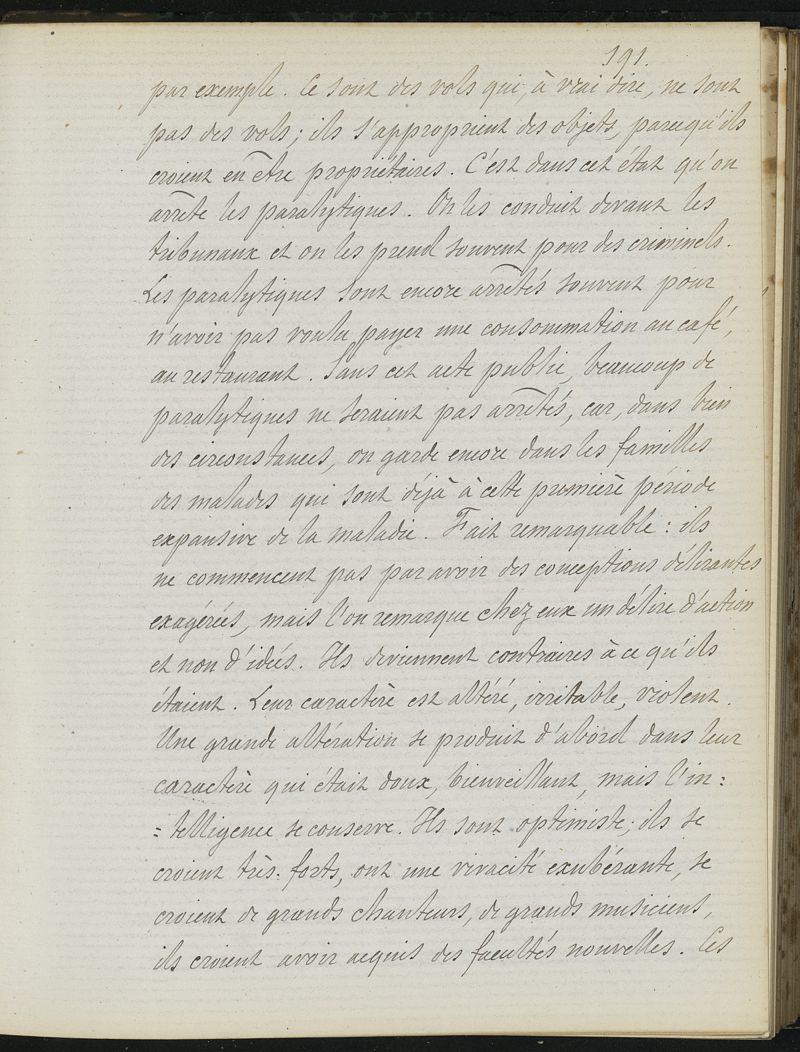 191.
par exemple. Ce sont des vols qui, à vrai dire, ne sont
pas des vols; ils s'approprient des objets, parce qu'ils
croient en être propriétaires. C'est dans cet état qu'on
arrête les paralytiques. On les conduit devant les
tribunaux et on les prend souvent pour des criminels.
Les paralytiques sont encore arrêtés souvent pour
n'avoir pas voulu payer une consommation au café,
au restaurant. Sans cet acte public, beaucoup de
paralytiques ne seraient pas arrêtés, car, dans bien
des circonstances, on garde encore dans les familles
des malades qui sont déjà à cette première période
expansive de la maladie. Fait remarquable: ils
ne commencent pas par avoir des conceptions délirantes
exagérées, mais l'on remarque chez eux un délire d'action
et non d'idées. Ils deviennent contraires à ce qu'ils
étaient. Leur caractère est altéré, irritable, violent.
Une grande altération se produit d'abord dans leur
caractère qui était doux, bienveillant, mais l'in=
=telligence se conserve. Ils sont optimiste; ils se
croient très-forts, ont une vivacité exubérante, se
croient de grands chanteurs, de grands musiciens,
ils croient avoir acquis des facultés nouvelles. Ces